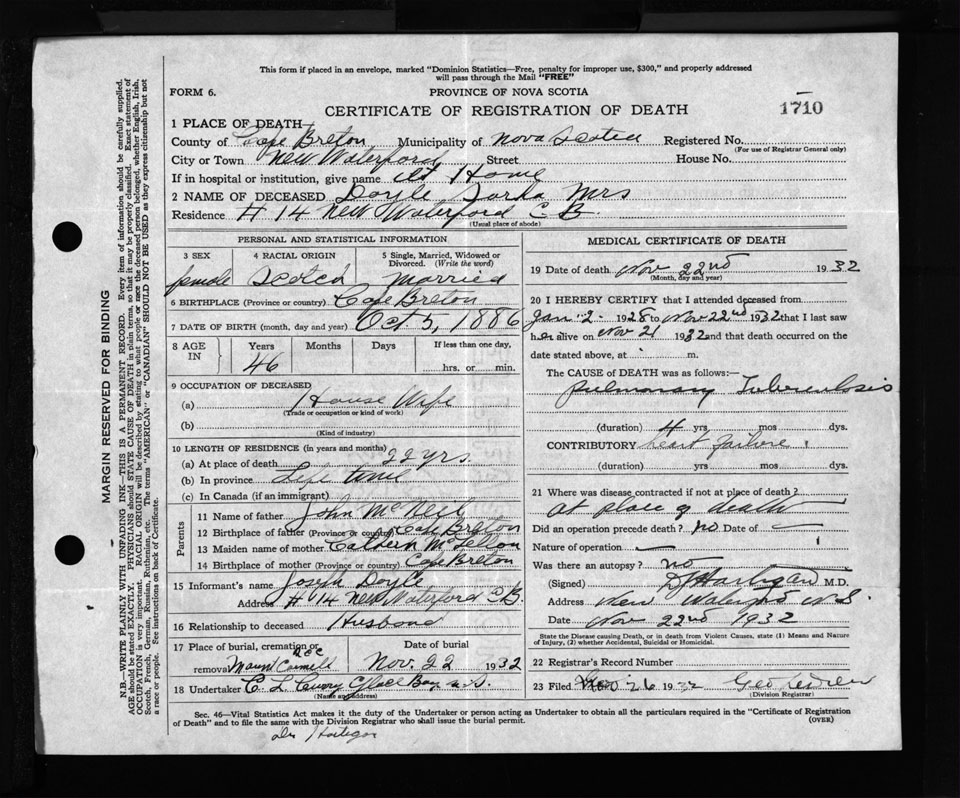 This form if placed in an envelope, marked "Dominion Statistics—Free, penalty for improper use, $300," and properly addressed
will pass through the Mail "FREE"
FORM 6.
PROVINCE OF NOVA SCOTIA
CERTIFICATE OF REGISTRATION OF DEATH
1710
1 PLACE OF DEATH
County of Cape Breton Municipality of Nova Scotia Registered No.
(For use of Registrar General only)
City or Town New Waterford Street House No.
If in hospital or institution, give name At Home
2 NAME OF DECEASED Doyle Mrs
Residence # 14 New Waterford C.B.
(Usual place of abode)
PERSONAL AND STATISTICAL INFORMATION
3 SEX 4 RACIAL ORIGIN 5 Single, Married, Widowed or Divorced. (Write the word)
female Scotch Married
6 BIRTHPLACE (Province or country) Cape Breton
7 DATE OF BIRTH (month, day and year) Oct 5, 1886
8 AGE IN Years Months Days If less than one day,
46 hrs. or min.
9 OCCUPATION OF DECEASED
(a) House Wife
(Trade or occupation or kind of work)
(b)
(Kind of industry)
10 LENGTH OF RESIDENCE (in years and months)
(a) At place of death 22 yrs.
(b) In province Life time
(c) In Canada (if an immigrant)
Parents
11 Name of father John McNeil
12 Birthplace of father (Province or country) Cape Breton
13 Maiden name of mother Cathern
14 Birthplace of mother (Province or country) Cape Breton
15 Informant's name Joseph Doyle
Address # 14 New Waterford C.B.
16 Relationship to deceased Husband
17 Place of burial, cremation or removal Date of burial
Nov. 22 1932
18 Undertaker C. L. Curry Glace Bay N.S.
(Name and address)
MEDICAL CERTIFICATE OF DEATH
19 Date of death Nov 22nd 1932
(Month, day and year)
20 I HEREBY CERTIFY that I attended deceased from
Jan 2 1928 to Nov 22nd 1932 that I last saw
her alive on Nov 21 1932 and that death occurred on the
date stated above, at m.
The CAUSE OF DEATH was as follows:
Pulmonary Tuberculosis
(duration) 4 yrs mos dys.
CONTRIBUTORY heart failure
(duration) yrs mos dys.
21 Where was disease contracted if not at place of death?
At place of death
Did an operation precede death? no Date of
Nature of operation
Was there an autopsy? no
(Signed) Hartigan M.D.
Address New Waterford N.S.
Date Nov 22nd 1932
State the Disease causing Death, or in death from Violent Causes, state (1) Means and Nature
of Injury, (2) whether Accidental, Suicidal or Homicidal.
22 Registrar's Record Number
23 Filed Nov 26 1932 Geo
(Division Registrar)
Sec. 46—Vital Statistics Act makes it the duty of the Undertaker or person acting as Undertaker to obtain all the particulars required in the "Certificate of Registration
of Death" and to file the same with the Division Registrar who shall issue the burial permit.
(OVER)
Hartigan
MARGIN RESERVED FOR BINDING
N.B.—WRITE PLAINLY WITH UNFADING INK—THIS IS A PERMANENT RECORD. Every item of information should be carefully supplied.
AGE should be stated EXACTLY. PHYSICIANS should STATE CAUSE OF DEATH in plain terms, so that it may be properly classified. Exact statement of
OCCUPATION is very important. RACIAL ORIGIN will be described by stating to what people or race the deceased person belonged, whether English, Irish,
Scotch, French, German, Russian, Ruthenian, etc. The terms "AMERICAN" or "CANADIAN" SHOULD NOT BE USED as they express citizenship but not
a race or people. See instructions on back of Certificate.